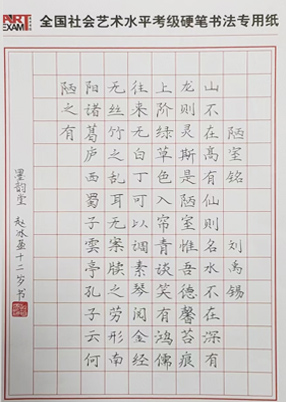 ART
EXAM
全国社会艺术水平考级硬笔书法专用纸
陋室铭 刘禹锡
山不在高有仙则名水不在深有
龙则灵斯是陋室惟吾德馨苔痕
上阶绿草色入帘青谈笑有鸿儒
往来无白丁可以调素琴阅金经
无丝竹之乱耳无案牍之劳形南
阳诸葛庐西蜀子雲亭孔子云何
陋之有
墨韵堂 赵冰十二岁书